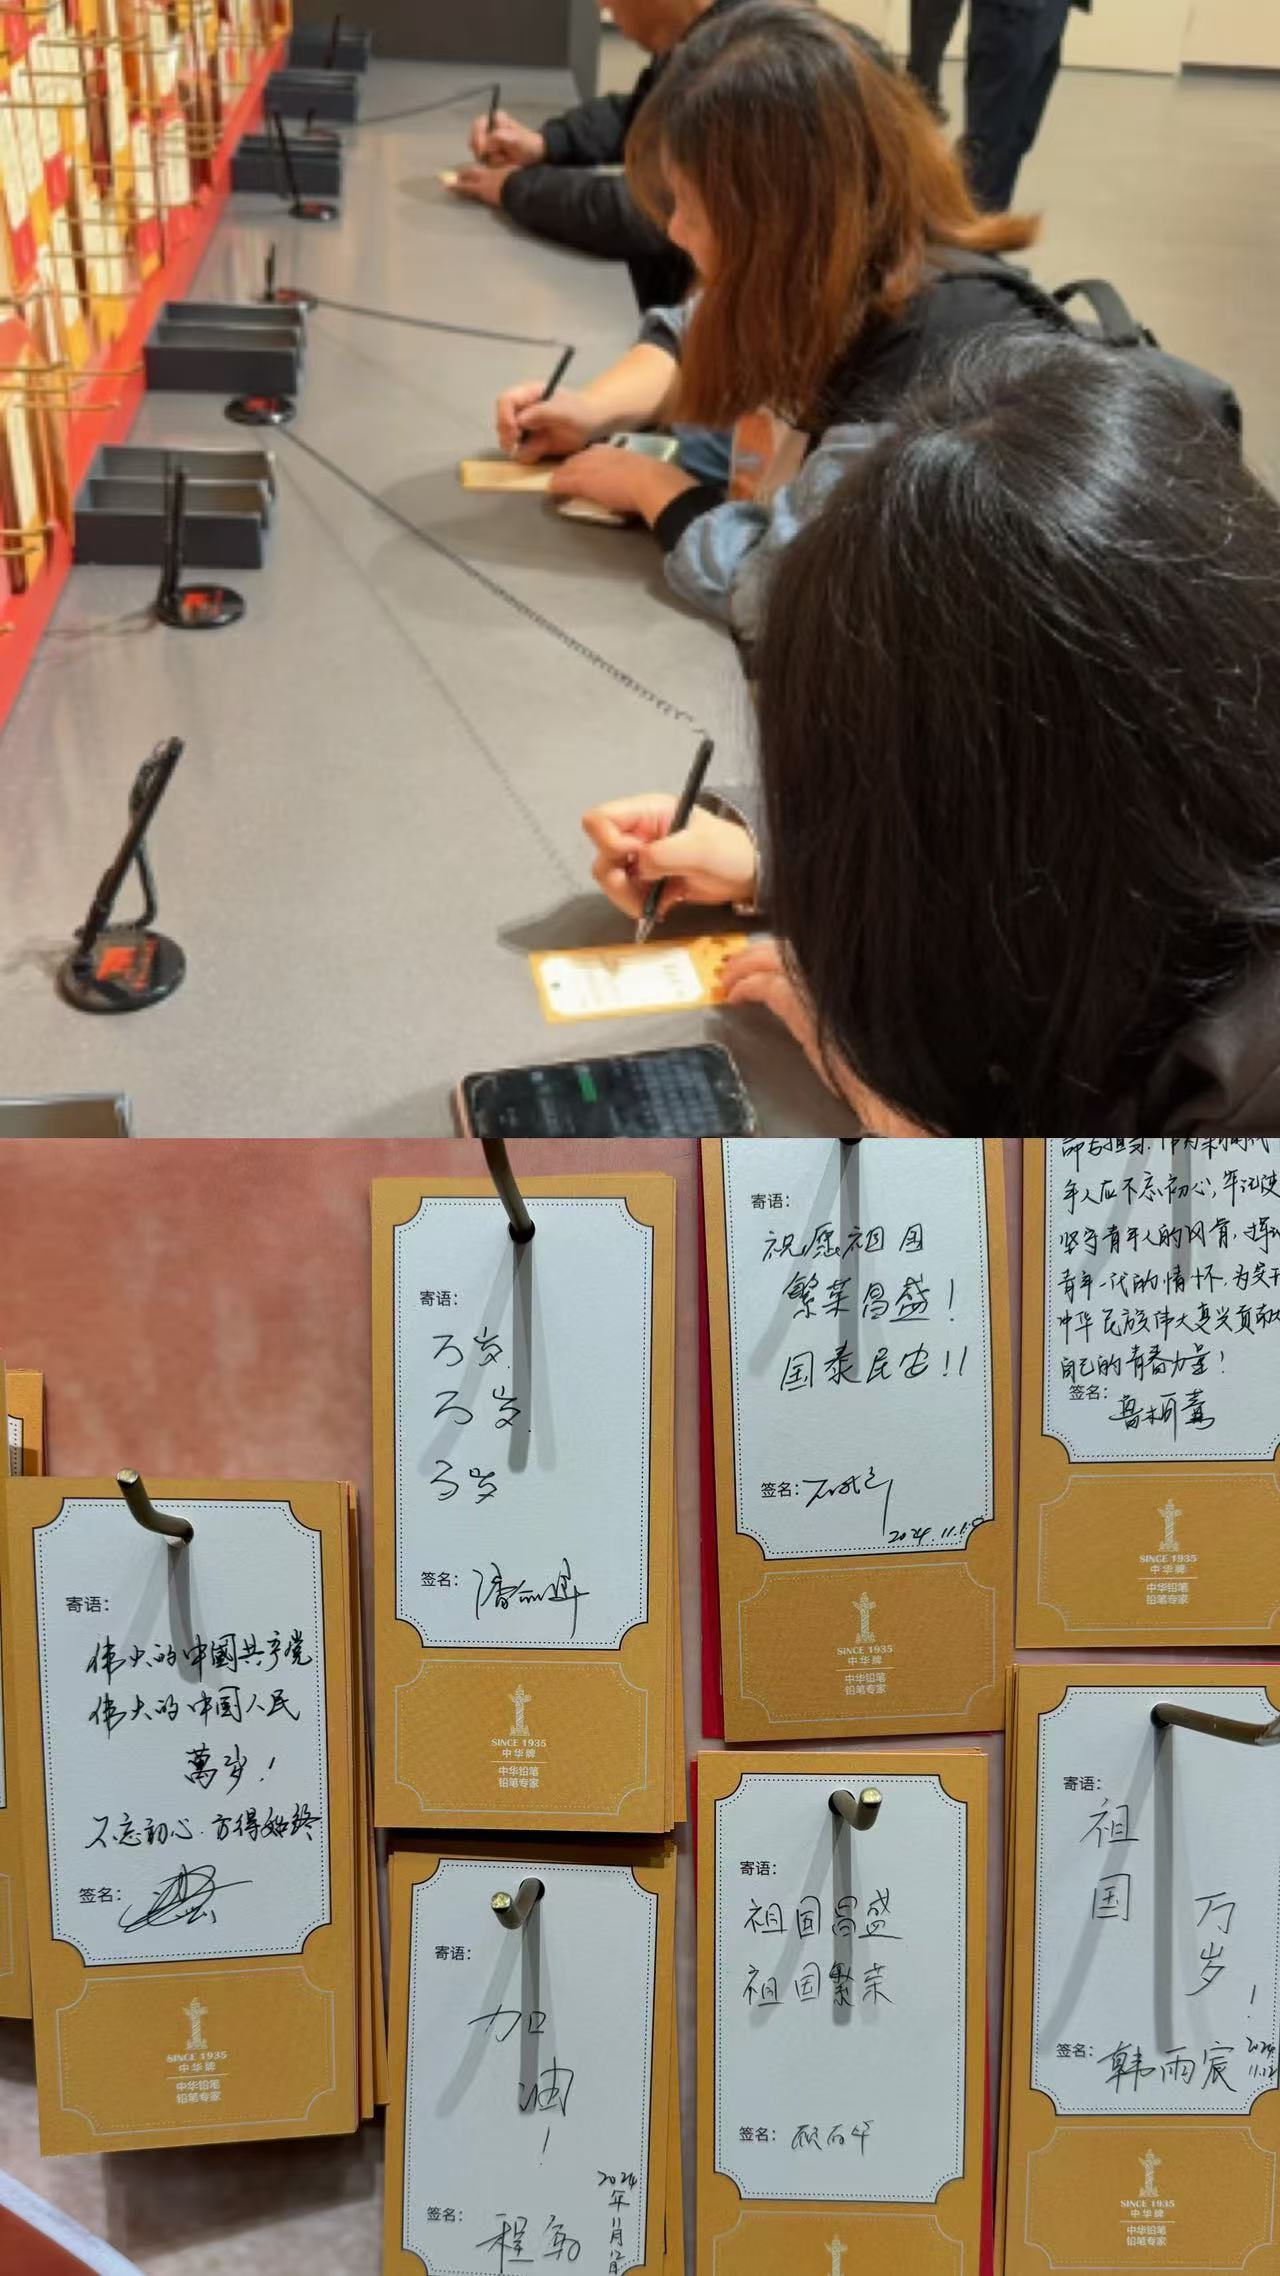 寄语：
万岁
万岁
万岁
签名：
SINCE 1935
中华牌
中华铅笔
铅笔专家
寄语：
祝愿祖国
繁荣昌盛！
国泰民安！！
签名：
2024.11.10
SINCE 1935
中华牌
中华铅笔
铅笔专家
年人应不忘初心，牢记使
坚守青年人的风骨，
青年一代的情怀，为
中华民族伟大复兴贡献
自己的青春力量！
签名：
SINCE 1935
中华牌
中华铅笔
铅笔专家
寄语：
伟大的中國共产党
伟大的中国人民
萬岁！
不忘初心.方得始终
签名：
SINCE 1935
中华牌
中华铅笔
铅笔专家
寄语：
加
油
！
签名：
程
2024
年
11
月
12
日
寄语：
祖国昌盛
祖国繁荣
签名：
寄语：
祖
国
万
岁
！
签名：韩雨宸
2024
11.12
SINCE 1935
中华牌
中华铅笔
铅笔专家